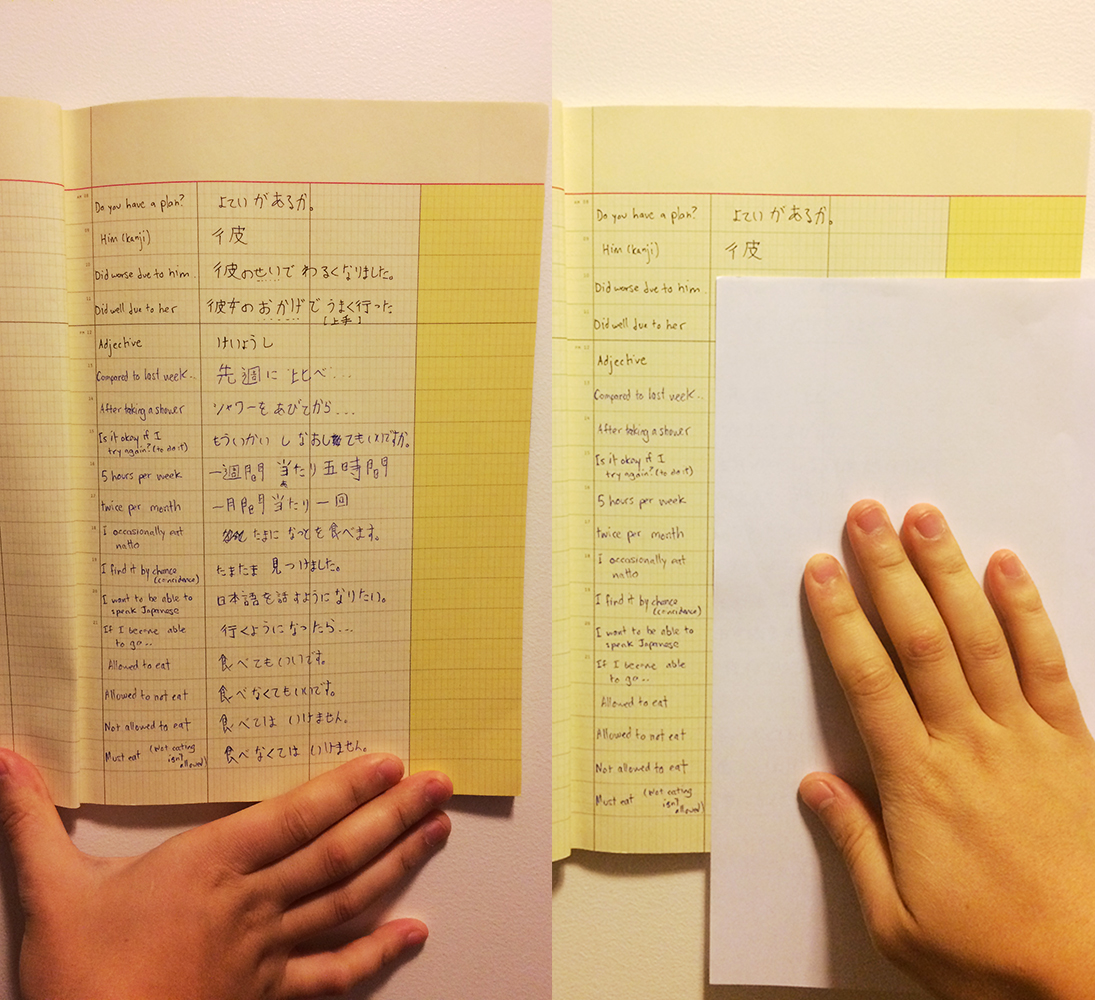 Do you have a plan? よていがあるか。
Him (kanji) 彼
Did worse due to him... 彼のせいでわるくなりました。
Did well due to her 彼女のおかげでうまく行った
[上手]
Adjective けいようし
Compared to last week... 先週に比べ...
After taking a shower シャワーをあびてから...
Is it okay if I もういかい しなおしてもいいですか。
try again? (to do it)
5 hours per week 一週間当たり五時間
twice per month 一月間当たり一回
I occasionally eat たまになっとを食べます。
natto
I find it by chance たまたま見つけました。
(coincidence)
I want to be able to 日本語を話すようになりたい。
speak Japanese
If I become able 行くようになったら...
to go...
Allowed to eat 食べてもいいです。
Allowed to not eat 食べなくてもいいです。
Not allowed to eat 食べてはいけません。
Must eat (Not eating 食べなくてはいけません。
isn't
allowed)
Do you have a plan? よていがあるか。
Him (kanji) 彼
Did worse due to him...
Did well due to her
Adjective
Compared to last week...
After taking a shower
Is it okay if I
try again? (to do it)
5 hours per week
twice per month
I occasionally eat
natto
I find it by chance
(coincidence)
I want to be able to
speak Japanese
If I become able
to go...
Allowed to eat
Allowed to not eat
Not allowed to eat
Must eat (Not eating
isn't
allowed)